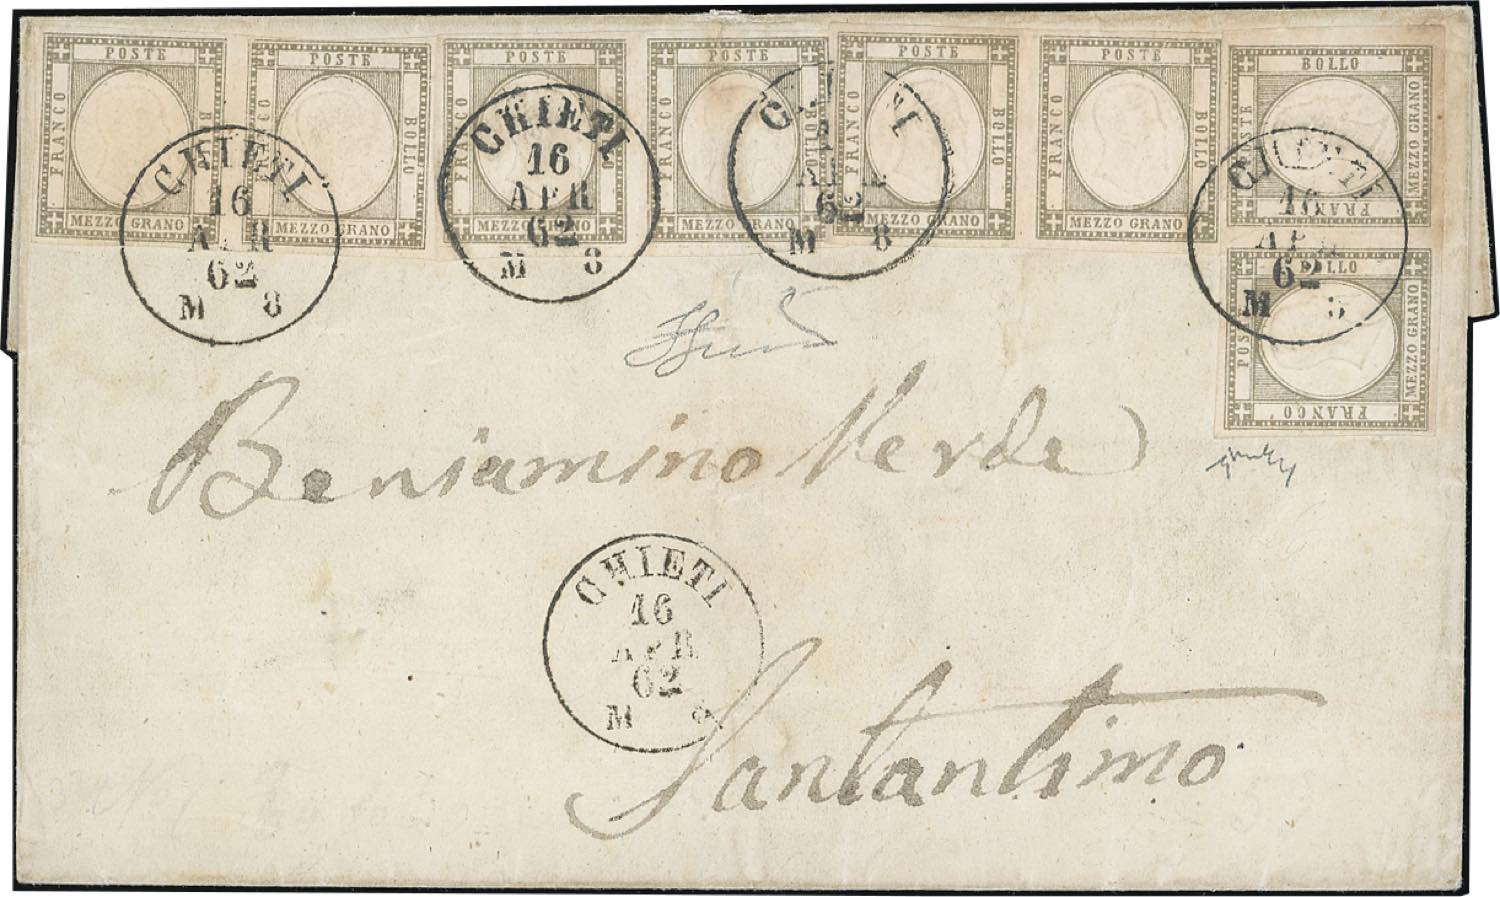 POSTE POSTE POSTE POSTE POSTE POSTE
FRANCO BOLLO FRANCO BOLLO FRANCO BOLLO FRANCO BOLLO FRANCO BOLLO
MEZZO GRANO MEZZO GRANO MEZZO GRANO MEZZO GRANO MEZZO GRANO MEZZO GRANO
BOLLO
POSTE MEZZO GRANO
FRANCO
BOLLO
POSTE MEZZO GRANO
FRANCO
CHIETI
16
APR
62
M 8
CHIETI
16
APR
62
M 8
CHIETI
APR
62
M 8
CHIETI
16
APR
62
M
Beniamino Verde
CHIETI
16
APR
62
M 8
Santantimo